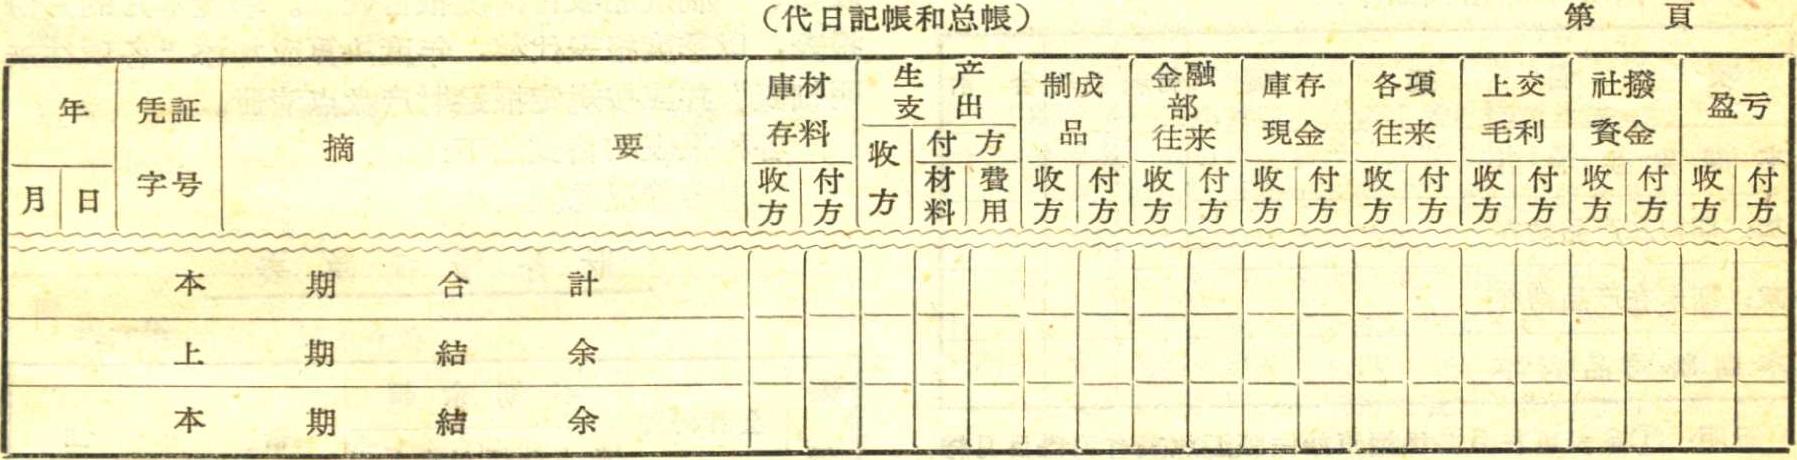 （代日記帳和总帳） 第 頁
年 凭証 摘 要 庫材 生产 制成 金融 庫存 各項 上交 社撥 盈亏
存料 支出 品 部 現金 往来 毛利 資金
往来
月 日 字号 收方 付方 收方 付方 收方 付方 收方 付方 收方 付方 收方 付方 收方 付方 收方 付方 收方 付方
材料 費用
本期合計
上期結余
本期結余